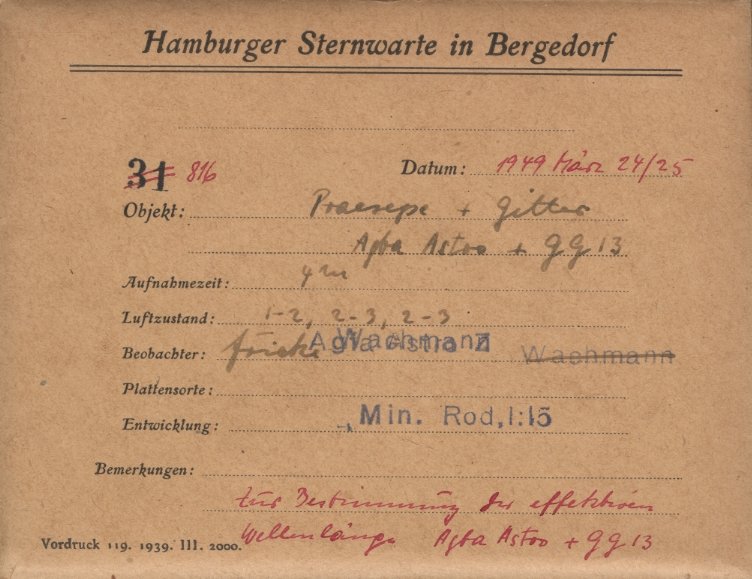 Hamburger Sternwarte in Bergedorf
31 816 Datum: 1949 März 24/25
Objekt: Praesepe + Gitter
Agfa Astro + GG 13
Aufnahmezeit: 4m
Luftzustand: 1-2, 2-3, 2-3
Beobachter: Fricke Wachmann Agfa Astro Z Wachmann
Plattensorte:
Entwicklung: Min. Rod, 1:15
Bemerkungen:
Zur Bestimmung der effektiven
Wellenlänge Agfa Astro + GG 13
Vordruck 119. 1939. III. 2000.